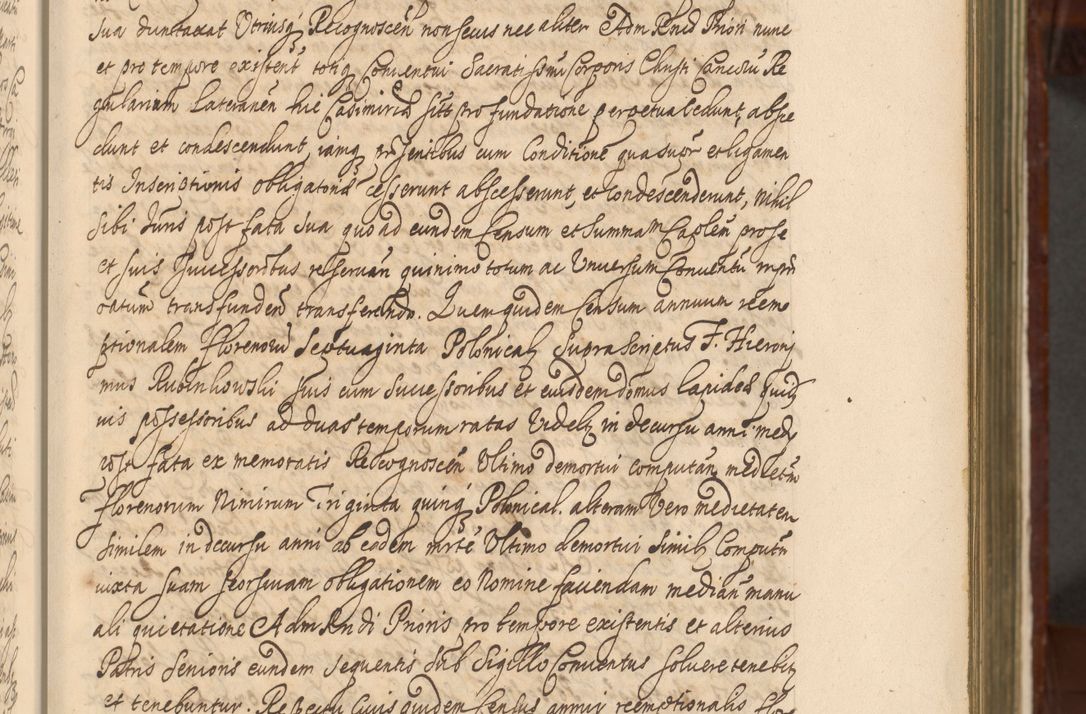 sua duntaxat Utriusq Recognoscen non secus nec aliter Adm Rndo Priori nunc
et pro tempore existent totiq Conventui Sacratissimi Corporis Christi Canonicoru Re
gularium Lateranen hic Casimiriae sitt pro fundatione perpetua Cedunt, absce
dunt et condescendunt, iamq prsentibus cum Conditione quasuor et ligamen
tis Inscriptionis obligatoriae cesserunt abscesserunt, et Condescenderunt, Nihil
sibi Juris post fata sua quo ad eundem Censum et Summam Caplem pro se
et suis Successoribus reservan quinimo totum ac Universum Conventu
transfunden transferendo. Quem quidem Censum annuum reem
ptionalem Florenoru Septuaginta Polonical Suprascriptus F. Hierony
mus Rubinkowski suis cum Successoribus et eiusdem domus lapideae
vis possessoribus ad duas temporum ratas Videl in decursu anni med
post fata ex memoratis Recognoscen Ultimo demortui computan medietem
Florenorum Nimirum Triginta quinq Polonical. alteram Vero medietatem
similem in decursu anni ab eadem mrte Ultimo demortui simil Computan
iuxta suam seorsivam obligationem eo Nomine faciendam median manu
ali quietatione Adm Rndi Prioris pro tempore existentis et alterius
Patris Senioris eundem sequentis Sub Sigillo Conventus solvere tenebit
et tenebuntur. Respectu Cuius quidem Census annui reemptionalis